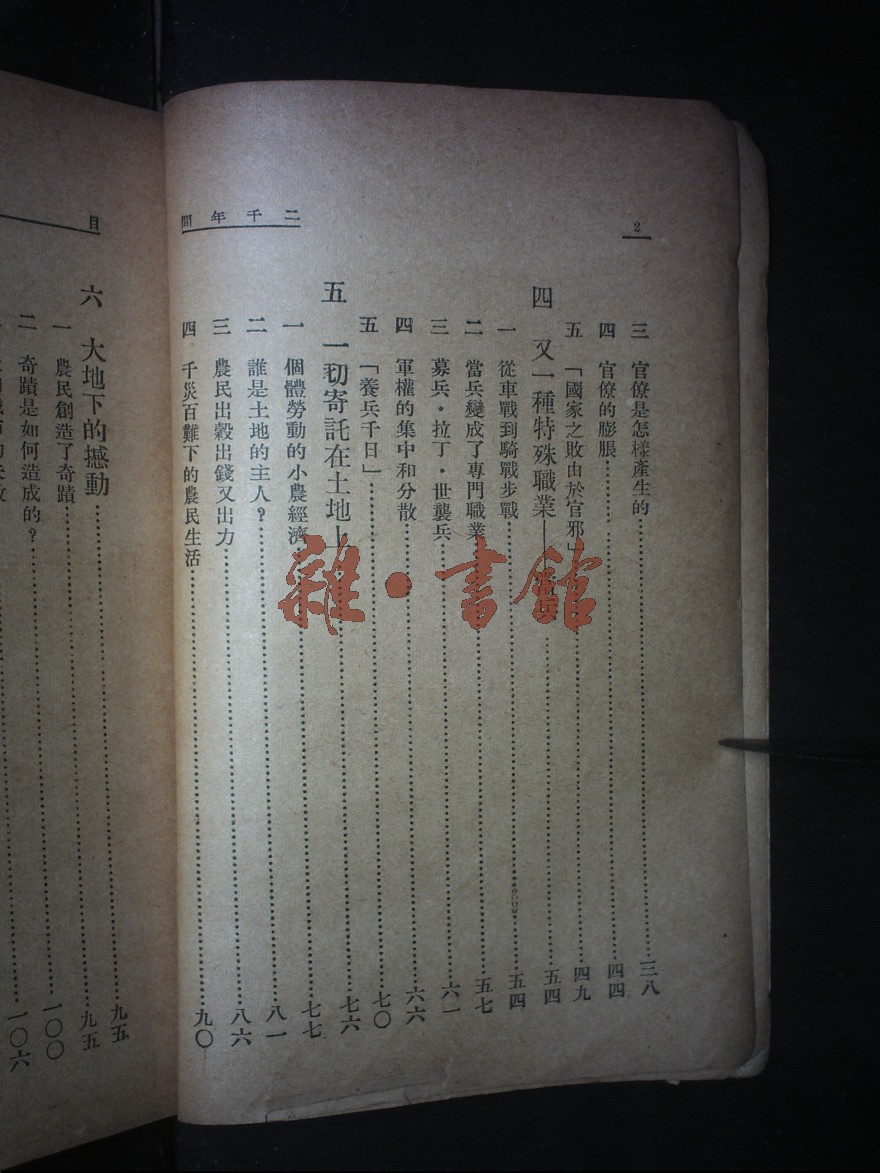 2
二千年間
三 官僚是怎樣產生的…………三八
四 官僚的膨脹…………四四
五 「國家之敗由於官邪」…………四九
四 又一種特殊職業——當兵…………五四
一 從車戰到騎戰步戰…………五四
二 當兵變成了專門職業…………五七
三 募兵・拉丁・世襲兵…………六一
四 軍權的集中和分散…………六六
五 「養兵千日」…………七〇
五 一切寄託在土地上…………七六
一 個體勞動的小農經濟…………七七
二 誰是土地的主人？…………八一
三 農民出穀出錢又出力…………八六
四 千災百難下的農民生活…………九〇
目
六 大地下的撼動…………九五
一 農民創造了奇蹟…………九五
二 奇蹟是如何造成的？…………一〇〇
一〇六
雜・書館